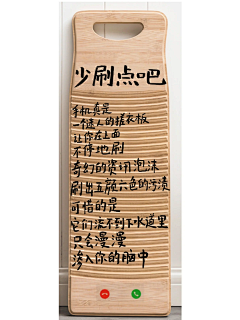 少刷点吧
手机真是
一个迷人的搓衣板
让你在上面
不停地刷
奇幻的资讯泡沫
刷出五颜六色的污渍
可惜的是
它们流不到下水道里
只会漫漫
渗入你的脑中